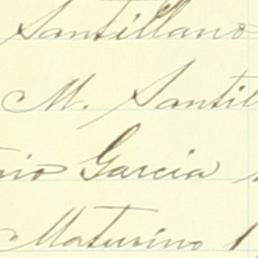 Santillano
M. Santil
rio Garcia
Maturino